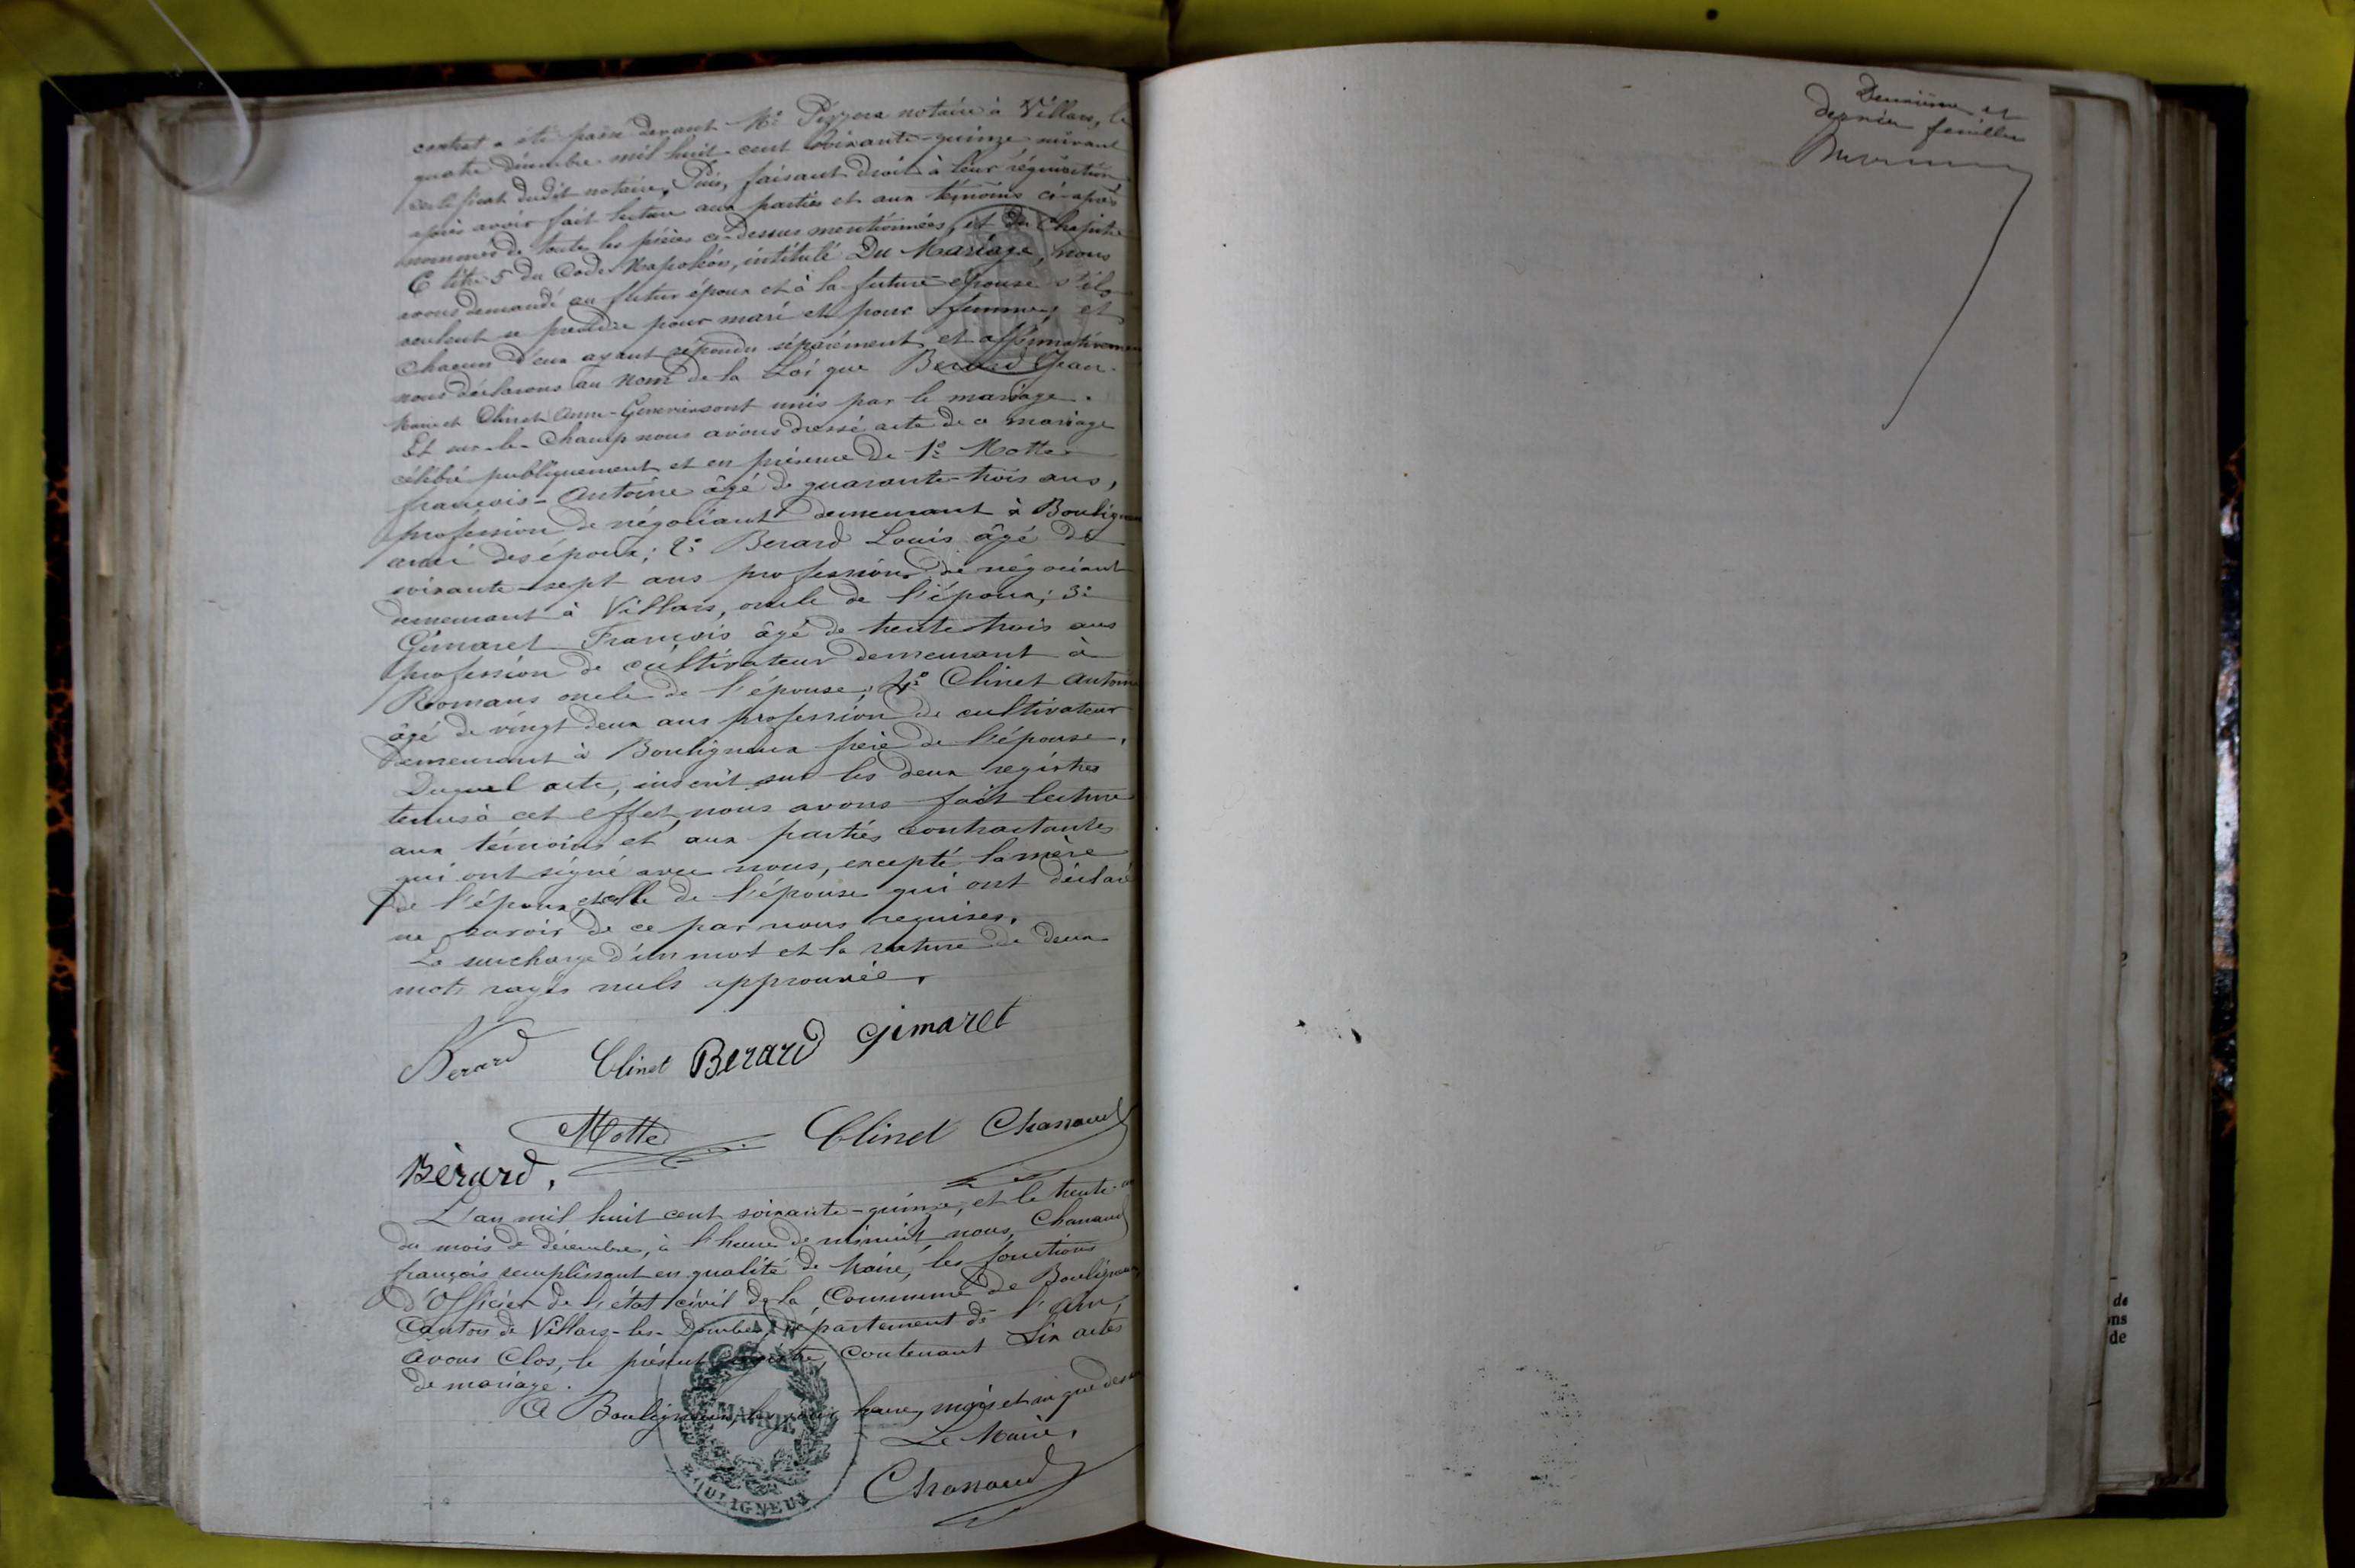 contrat a été passé devant Me notaire à Villars, le
quatre décembre mil huit cent soixante-quinze, suivant
certificat dudit notaire, Puis, faisant droit à leur réquisition
après avoir fait lecture aux parties et aux témoins ci-après
nommés de toutes les pièces ci-dessus mentionnées, et du Chapitre
6 titre 5 du Code Napoléon, intitulé Du Mariage, nous
avons demandé au futur époux et à la future épouse s'ils
veulent se prendre pour mari et pour femme; et
Chacun d'eux ayant répondu séparément et affirmativement
nous déclarons au nom de la Loi que Berard Jean-
Marie et Clinet Anne-Genevieve sont unis par le mariage.
Et sur-le-Champ nous avons dressé acte de ce mariage
célébré publiquement et en présence de 1° Motte
françois-Antoine âgé de quarante-trois ans,
profession de négociant demeurant à Bouligneux
ami des époux; 2° Berard Louis âgé de
soixante-sept ans profession de négociant
demeurant à Villars, oncle de l'époux; 3°
Gimaret François âgé de trente trois ans
profession de cultivateur demeurant à
Romans oncle de l'épouse; 4° Clinet Antoine
âgé de vingt deux ans profession de cultivateur
demeurant à Bouligneux frère de l'épouse.
Duquel acte, inscrit sur les deux registres
tenus à cet effet, nous avons fait lecture
aux témoins et aux parties contractantes
qui ont signé avec nous, excepté la mère
de l'époux et celle de l'épouse qui ont déclaré
ne savoir de ce par nous requises.
La surcharge d'un mot et la rature de deux
mots rayés nuls approuvée.
Berard Clinet Berard Gimaret
Motte Clinet Chanaud
Bèrard.
L'an mil huit cent soixante-quinze, et le trente-un
du mois de décembre, à l'heure de minuit, nous, Chanaud
françois remplissant en qualité de Maire, les fonctions
d'Officier de l'état civil de la Commune de Bouligneux,
Canton de Villars-les-Dombes, département de l'Ain,
Avons Clos, le présent registre, Contenant Six actes
de mariage.
A Bouligneux, les jour, heure, mois et an que dessus
Le Maire,
Chanaud
AIN
MAIRIE
BOULIGNEUX
Deuxième et
dernier feuillet
de
ons
de